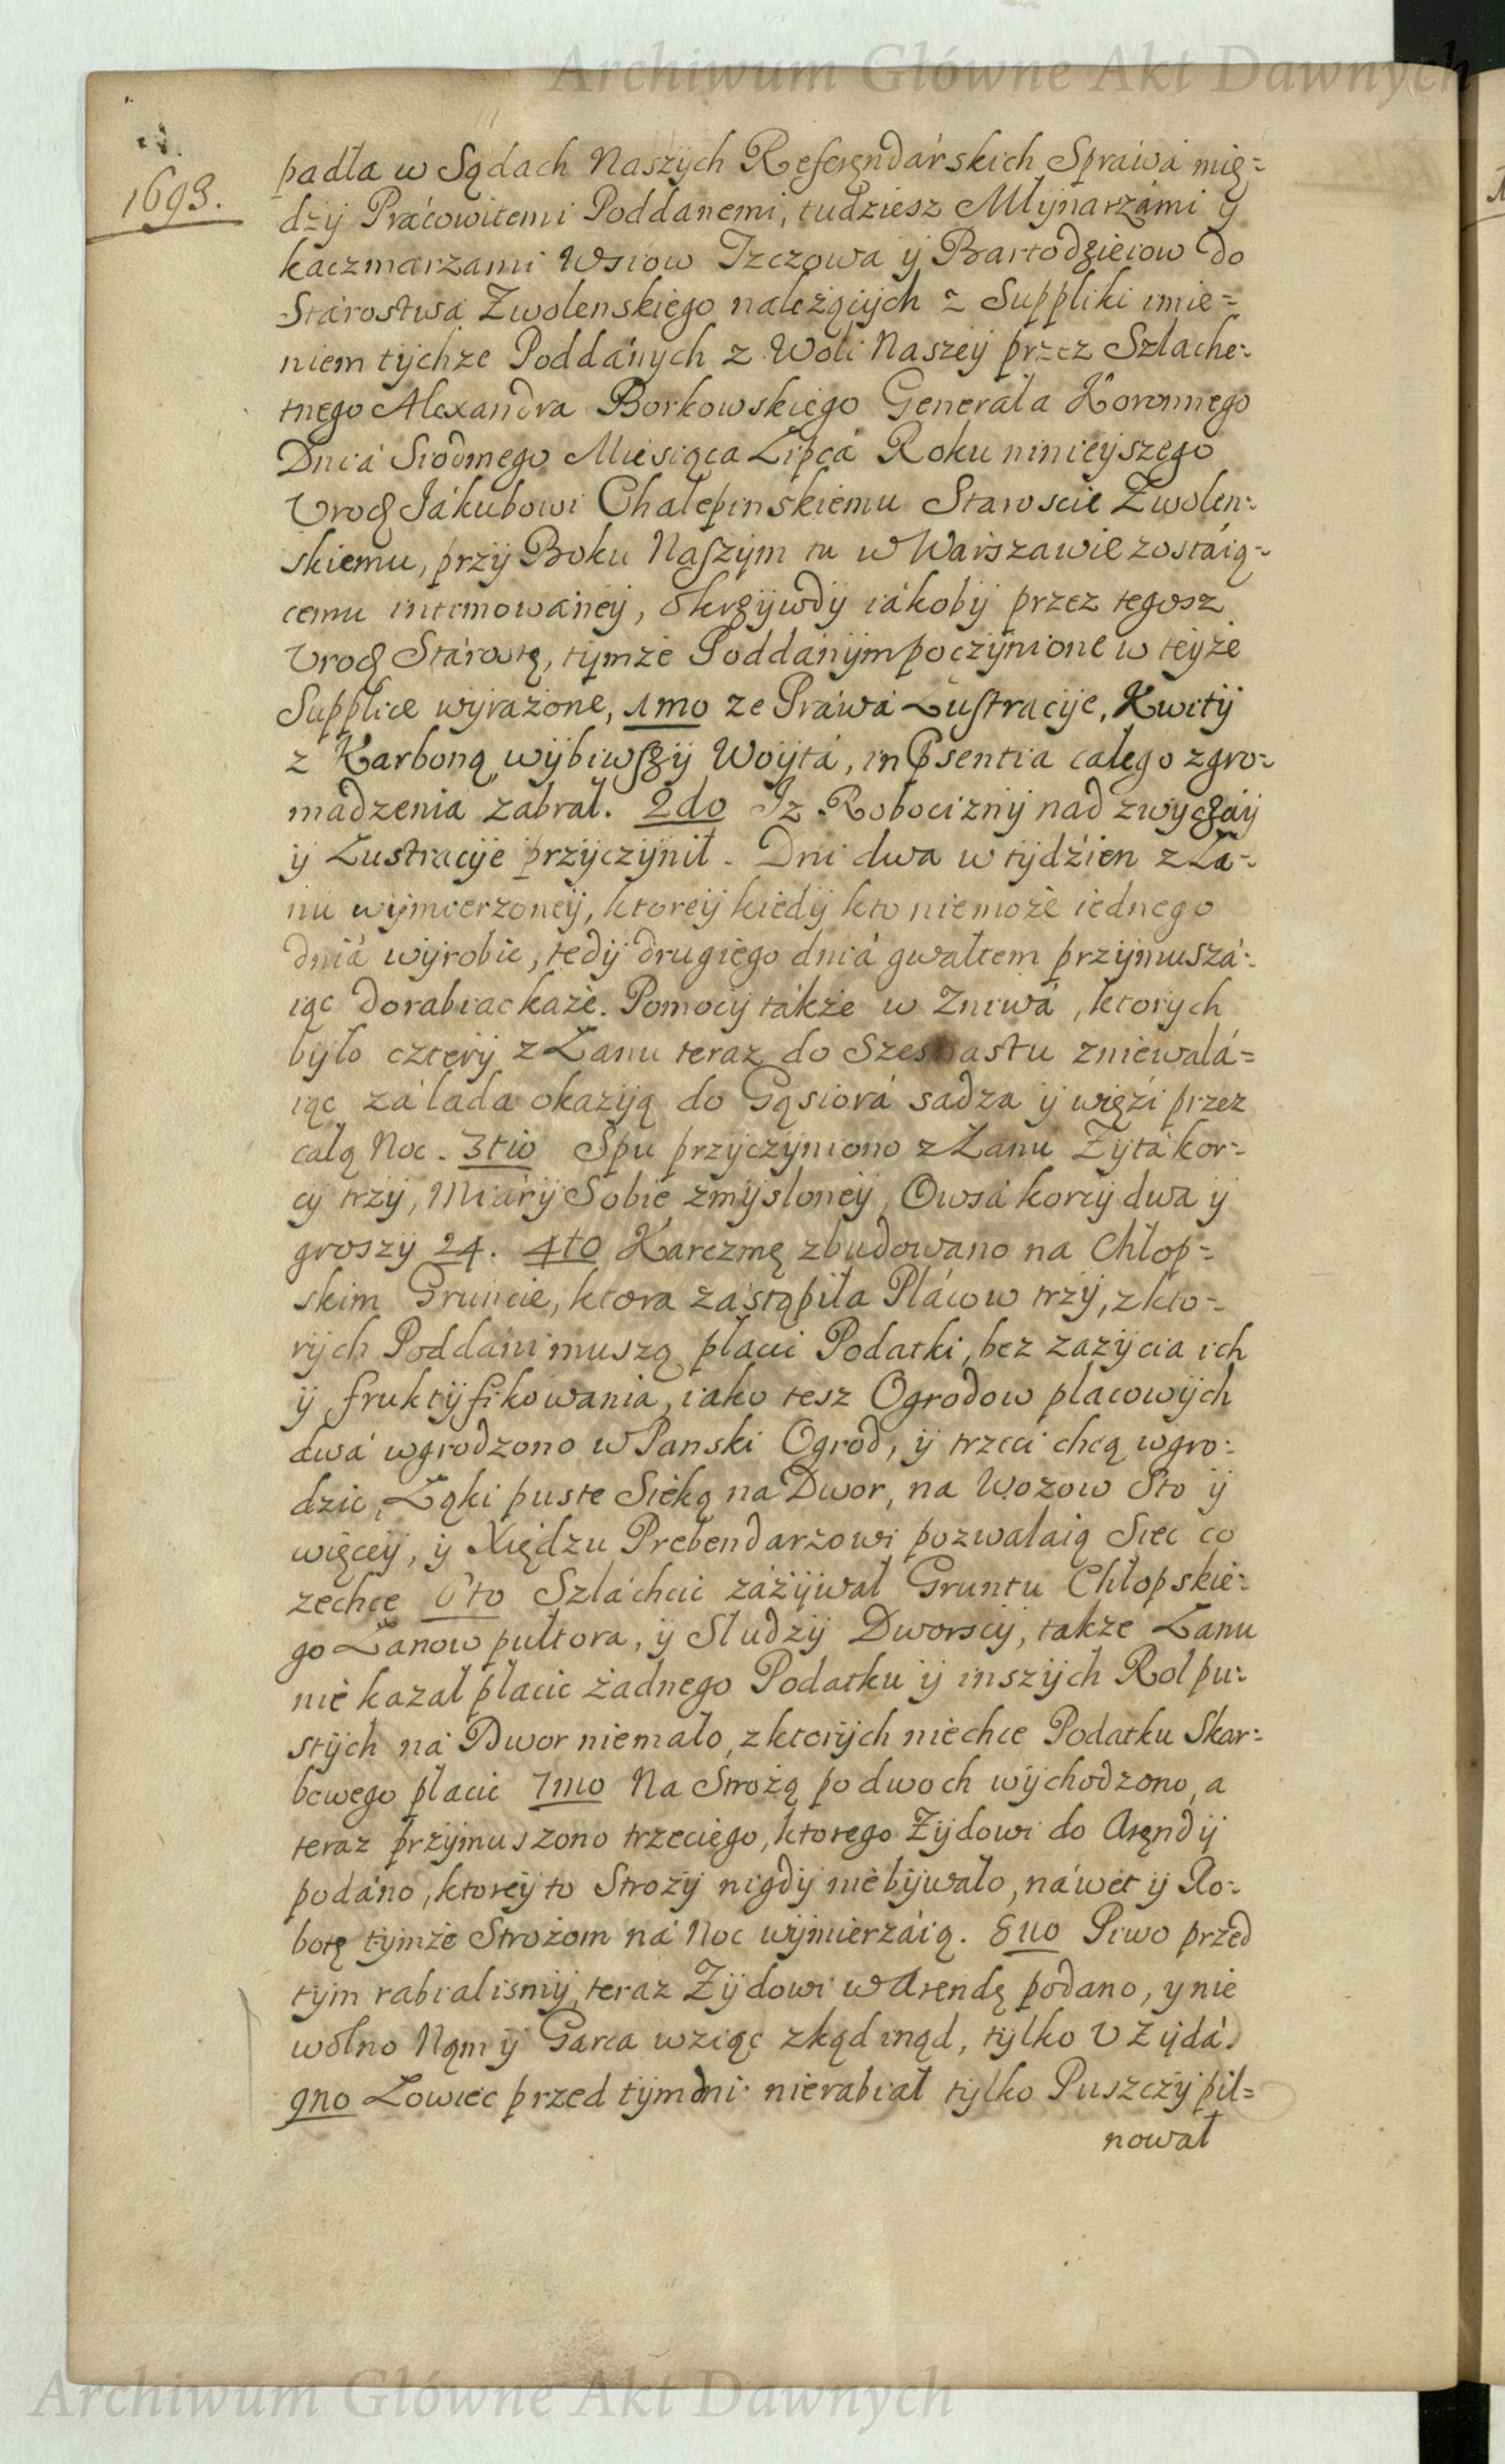 Archiwum Główne Akt Dawnych
1693.
padła w Sądach Naszych Referęndarskich Sprawa mię=
dzy Pracowitemi Poddanemi, tudziesz Młynarzámi y
kaczmarzami Wsiow Jzczowa y Bartodzieiow do
Starostwa Zwolenskiego należących z Suppliki imie=
niem tychże Poddánych z Woli Naszey przez Szlache=
tnego Alexandra Borkowskiego Generała Koronnego
Dnia Siodmego Miesiąca Lipca Roku ninieyszego
Urodz Jákubowi Chalepinskiemu Staroscie Zwolen=
skiemu, przy Boku Naszym tu w Warszawie zostáią=
cemu intimowáney, Okrzywdy iákoby przez tegosz
Urodz Stárostę, tymże Poddánym poczynione w teyże
Supplice wyrażone, 1mo ze Práwa Lustracye, Kwity
z Karboną wybiwszy Woyta, in Psentia całego zgro=
madzenia zabrał. 2do Jz Robocizny nad zwyczay
y Lustracye przyczynił. Dni dwa w tydzien z Ła=
nu wymierzoney, ktorey kiedy kto niemoże iednego
dniá wyrobic, tedy drugiego dniá gwałtem przymuszá=
iąc dorabiac każe. Pomocy także w Zniwa, ktorych
było cztery z Łanu teraz do Szesnastu zniewalá=
iąc zá lada okazyą do Gąsiorá sadza y więzi przez
całą Noc. 3tio Spu przyczyniono z Łanu Zyta kor=
cy trzy, Miáry Sobie zmysloney, Owsa korcy dwa y
groszy 24. 4to Karczmę zbudowano na Chłop=
skim Gruncie, ktora zastąpiła Pláców trzy, z kto=
rych Poddáni muszą płacić Podatki, bez zazycia ich
y fruktyfikowania, iako tesz Ogrodow placowych
dwá wgrodzono w Panski Ogrod, y trzeci chcą wgro=
dzic, Łąki puste Sieką na Dwor, na Wozow Sto y
więcey, y Xiędzu Prebendarzowi pozwalaią Siec co
zechce 6to Szláchcic záżywał Gruntu Chłopskie=
go Łanow pułtora, y Słudzy Dworscy, takze Łanu
nie kazał płacic żadnego Podatku y inszych Rol pu=
stych ná Dwor niemało, z ktorych niechce Podatku Skar=
bowego płacic 7mo Na Strożą po dwoch wychodzono, a
teraz przymuszono trzeciego, ktorego Żydowi do Aręndy
podáno, ktorey to Stroży nigdy niebywało, náwet y Ro=
botę tymże Strożom ná Noc wymierzáią. 8vo Piwo przed
tym rabialismy, teraz Żydowi w Arendę podano, y nie
wolno Nąm y Garca wziąc zkąd inąd, tylko U Żydá.
9no Łowiec przed tym dni nierabiał tylko Puszczy pil=
nował
Archiwum Główne Akt Dawnych